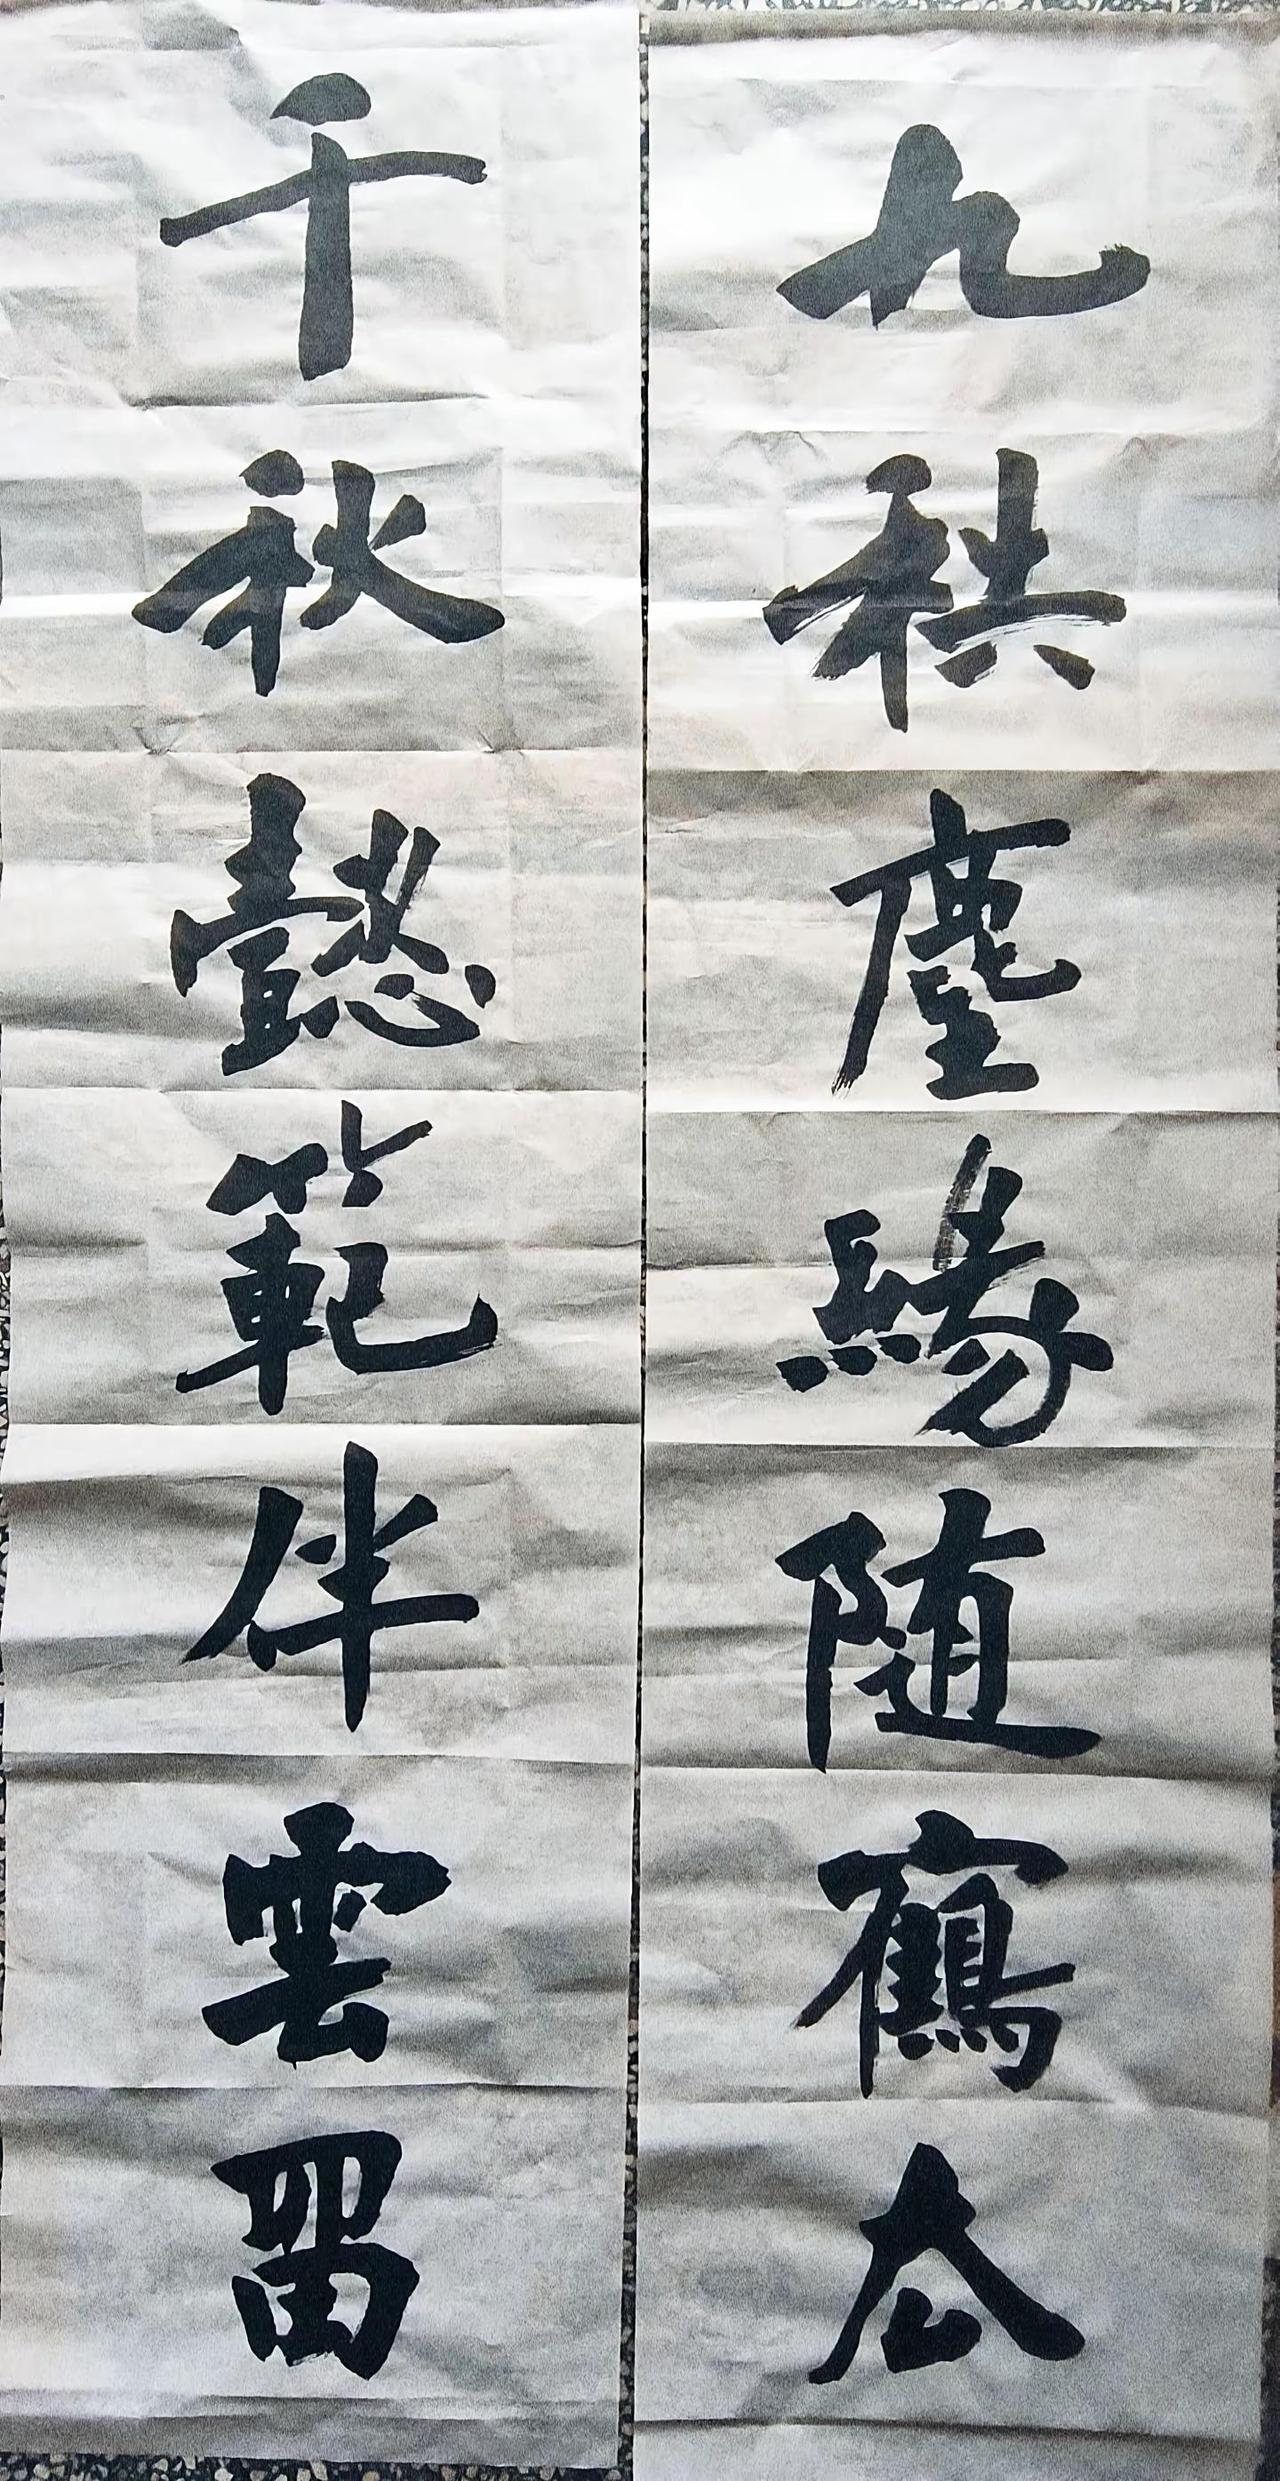 九秩塵緣随鶴去
千秋懿範伴雲留